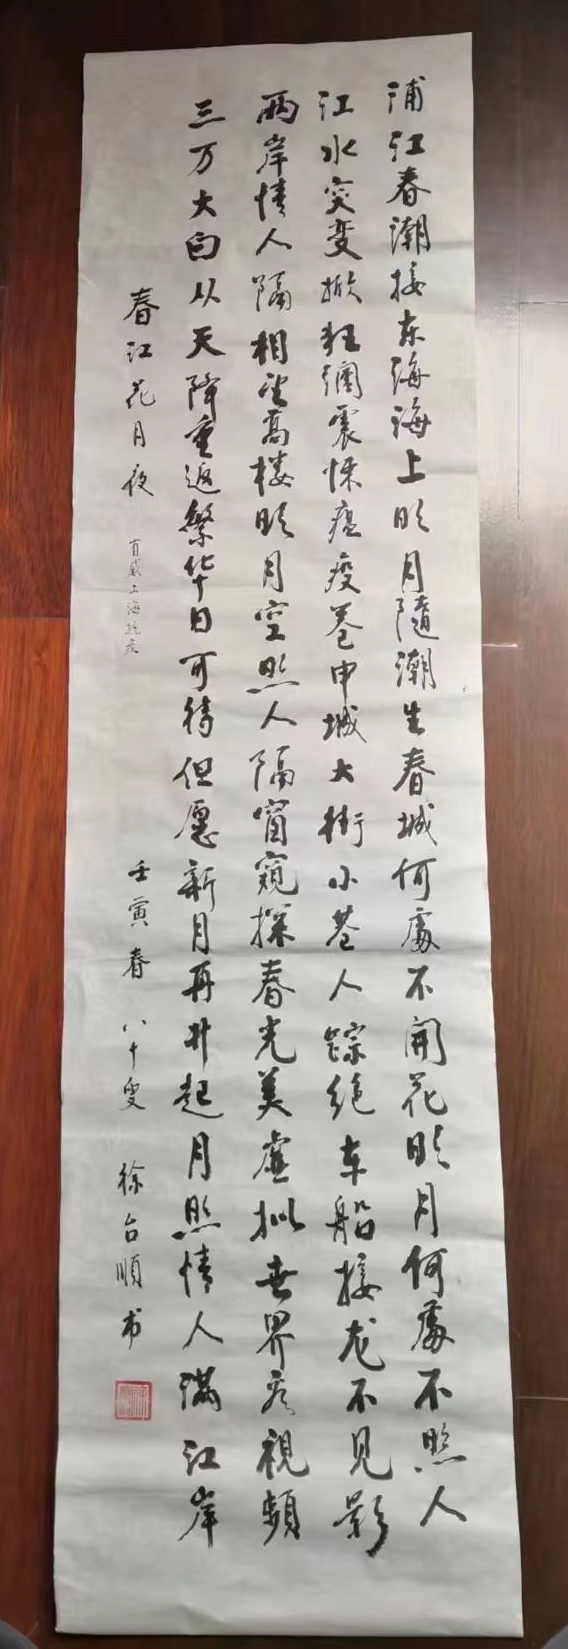 浦江春潮接东海海上明月随潮生春城何處不開花明月何處不照人
江水突变掀狂澜震悚瘟疫卷申城大街小巷人踪绝车船接龙不见影
两岸情人隔相望高楼明月空照人隔窗窥探春光美虚拟世界看视频
三万大白从天降重返繁华日可待但愿新月再升起月照情人满江岸
春江花月夜 有感上海抗疫
壬寅春 八十叟 徐台順书